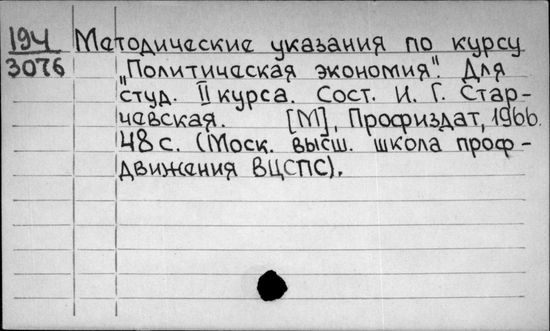 194
3076
Методические указания по курсу
"Политическая экономия". Для
студ. II курса. Сост. И. Г. Стар-
чевская. [М], Профиздат, 1966.
48 с. (Моск. высш. школа проф-
движения ВЦСПС).